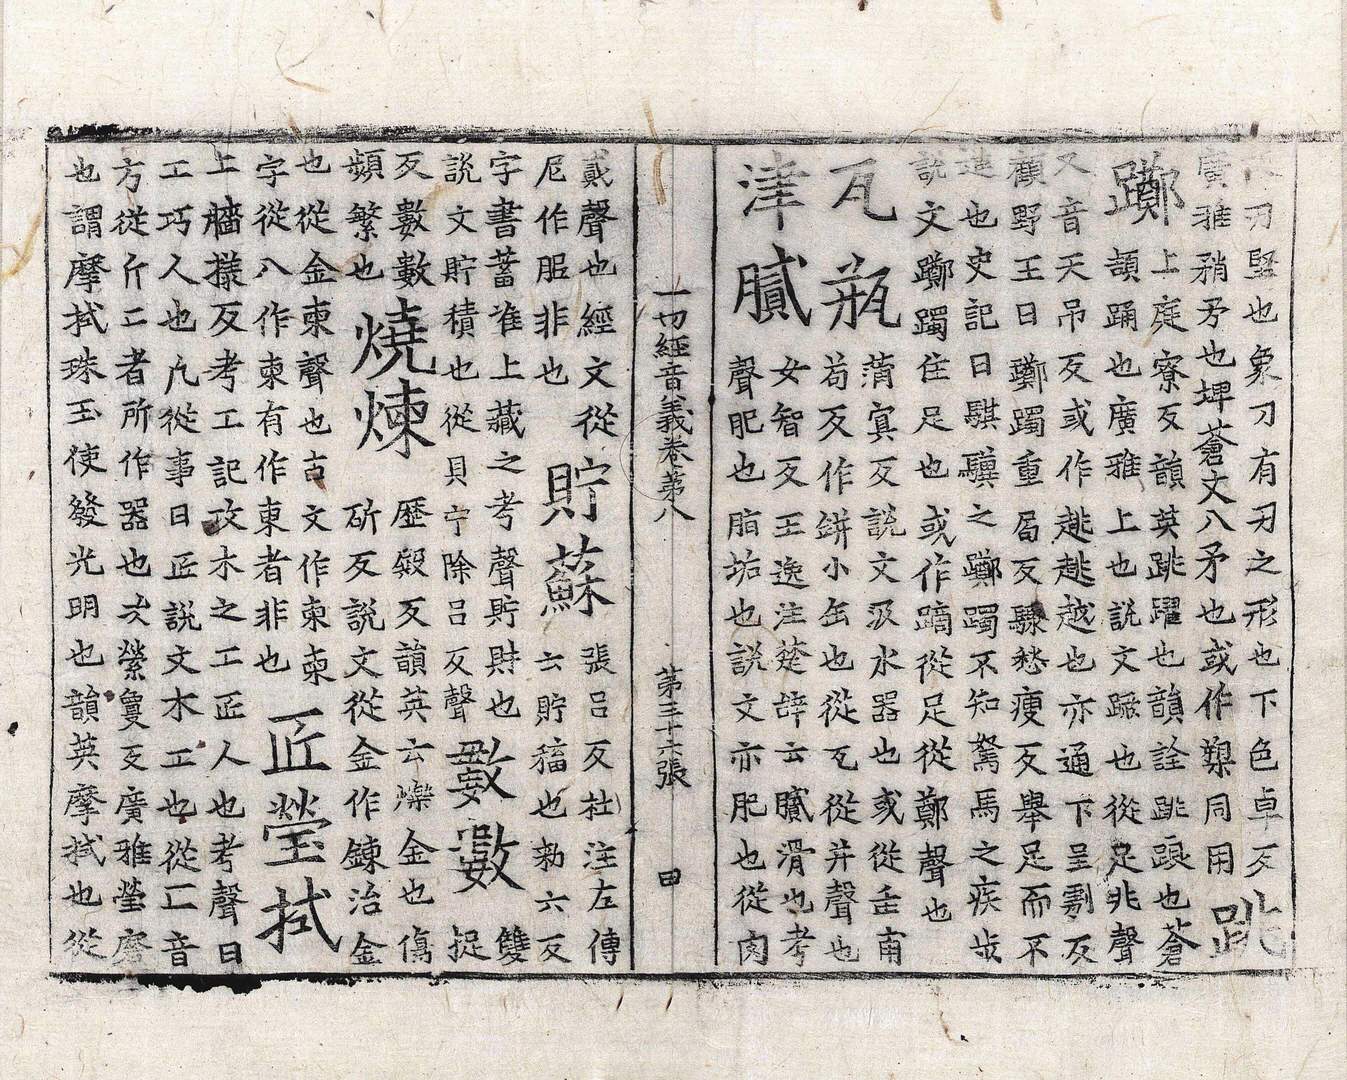 刃堅也象刀有刃之形也下色卓反
廣雅矟矛也埤蒼丈八矛也或作槊同用
跳
躑
上庭寮反韻英跳躍也韻詮跳踉也蒼
頡踊也廣雅上也說文蹶也從足兆聲
又音天吊反或作趒趒越也亦通下呈剭反
顧野王曰躑躅重局反驟愁瘦反舉足而不
進也史記曰騏驥之躑躅不知駑馬之疾步
說文躑躅住足也或作蹢從足從鄭聲也
瓦瓶
蓱冥反說文汲水器也或從缶甫
茍反作缾小缶也從瓦從并聲也
津膩
女智反王逸注楚辭云膩滑也考
聲肥也脂垢也說文亦肥也從肉
一切經音義卷第八 第三十六張 田
貳聲也經文從
尼作䏧非也
貯蘇
張呂反杜注左傳
云貯稸也勑六反
字書蓄准上藏之考聲貯財也
說文貯積也從貝宁除呂反聲
數數
雙
捉
反數數
頻繁也
燒煉
歷殿反韻英云爍金也傷
斫反說文從金作鍊治金
也從金柬聲也古文作柬柬
字從八作柬有作東者非也
匠瑩拭
上牆㨾反考工記攻木之工匠人也考聲曰
工巧人也凡從事曰匠說文木工也從匚音
方從斤二者所作器也次縈敻反廣雅瑩磨
也謂摩拭珠玉使發光明也韻英摩拭也從